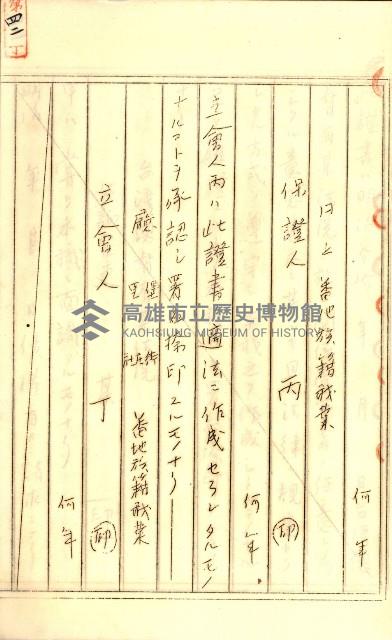 第四二丁
同上 番地族籍職業
何年
保證人 丙 印
何年
立會人丙ハ此證書ノ適法ニ作成セラレタルモノ
ナルコトヲ承認シ署名捺印スルモノナリ
廳 堡里 街庄社 番地族籍職業
立會人 丁 印
何年
高雄市立歷史博物館
KAOHSIUNG MUSEUM OF HISTORY